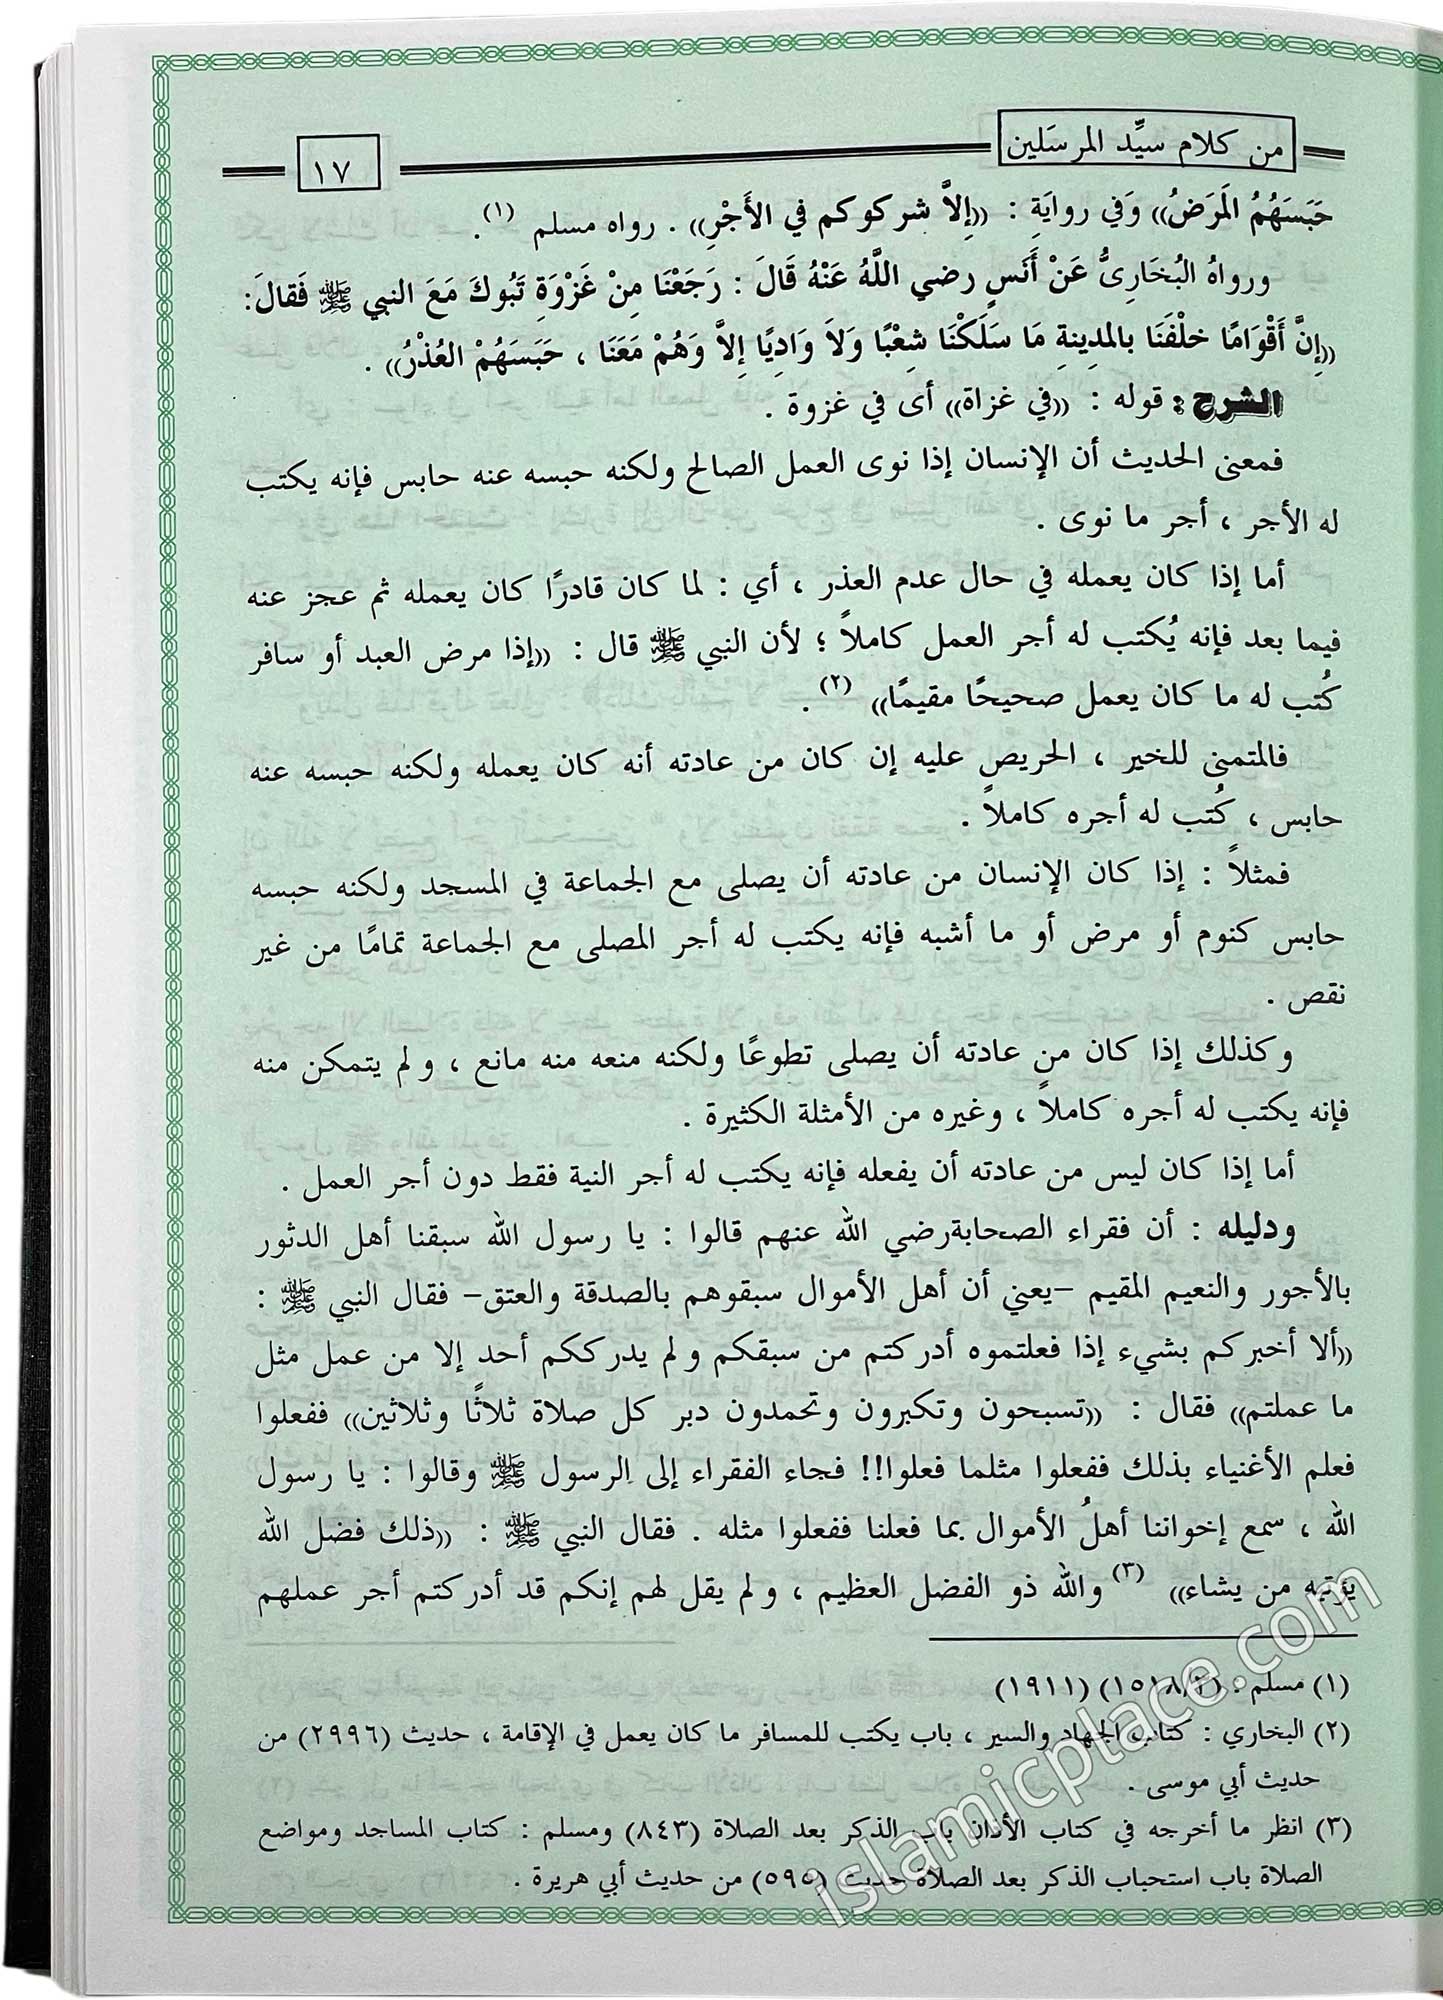 من كلام سيِّد المرسَلين
١٧
حَبَسَهُمُ المَرَضُ» وَفي روايَةِ : «إِلاَّ شركوكم في الأَجْرِ» . رواه مسلم (١).
ورواهُ البُخَارِىُّ عَنْ أَنَسٍ رضي اللَّهُ عَنْهُ قَالَ : رَجَعْنَا مِنْ غَزْوَةِ تَبُوكَ مَعَ النبي ﷺ فَقالَ:
«إِنَّ أَقْوَامًا خلْفَنَا بالمدِينةِ مَا سَلَكْنَا شِعْبًا وَلاَ وَادِيًا إِلاَّ وَهُمْ مَعَنَا ، حَبَسَهُمْ العُذْرُ» .
الشرح : قوله : «في غزاة» أى في غزوة .
فمعنى الحديث أن الإنسان إذا نوى العمل الصالح ولكنه حبسه عنه حابس فإنه يكتب
له الأجر ، أجر ما نوى .
أما إذا كان يعمله في حال عدم العذر ، أي : لما كان قادرًا كان يعمله ثم عجز عنه
فيما بعد فإنه يُكتب له أجر العمل كاملاً ؛ لأن النبي ﷺ قال : «إذا مرض العبد أو سافر
كُتب له ما كان يعمل صحيحًا مقيمًا» (٢) .
فالمتمنى للخير ، الحريص عليه إن كان من عادته أنه كان يعمله ولكنه حبسه عنه
حابس ، كُتب له أجره كاملاً .
فمثلاً : إذا كان الإنسان من عادته أن يصلى مع الجماعة في المسجد ولكنه حبسه
حابس كنوم أو مرض أو ما أشبه فإنه يكتب له أجر المصلى مع الجماعة تمامًا من غير
نقص .
وكذلك إذا كان من عادته أن يصلى تطوعًا ولكنه منعه منه مانع ، ولم يتمكن منه
فإنه يكتب له أجره كاملاً ، وغيره من الأمثلة الكثيرة .
أما إذا كان ليس من عادته أن يفعله فإنه يكتب له أجر النية فقط دون أجر العمل .
ودليله : أن فقراء الصحابة رضي الله عنهم قالوا : يا رسول الله سبقنا أهل الدثور
بالأجور والنعيم المقيم –يعني أن أهل الأموال سبقوهم بالصدقة والعتق– فقال النبي ﷺ :
«ألا أخبركم بشيء إذا فعلتموه أدركتم من سبقكم ولم يدرككم أحد إلا من عمل مثل
ما عملتم» فقال : «تسبحون وتكبرون وتحمدون دبر كل صلاة ثلاثًا وثلاثين» ففعلوا
فعلم الأغنياء بذلك ففعلوا مثلما فعلوا!! فجاء الفقراء إلى الرسول ﷺ وقالوا : يا رسول
الله ، سمع إخواننا أهلُ الأموال بما فعلنا ففعلوا مثله . فقال النبي ﷺ : «ذلك فضل الله
يؤتيه من يشاء» (٣) والله ذو الفضل العظيم ، ولم يقل لهم إنكم قد أدركتم أجر عملهم
(١) مسلم : (١٥١٨/٣) (١٩١١)
(٢) البخاري : كتاب الجهاد والسير ، باب يكتب للمسافر ما كان يعمل في الإقامة ، حديث (٢٩٩٦) من
حديث أبي موسى .
(٣) انظر ما أخرجه في كتاب الأذان باب الذكر بعد الصلاة (٨٤٣) ومسلم : كتاب المساجد ومواضع
الصلاة باب استحباب الذكر بعد الصلاة حديث (٥٩٥) من حديث أبي هريرة .
islamicplace.com